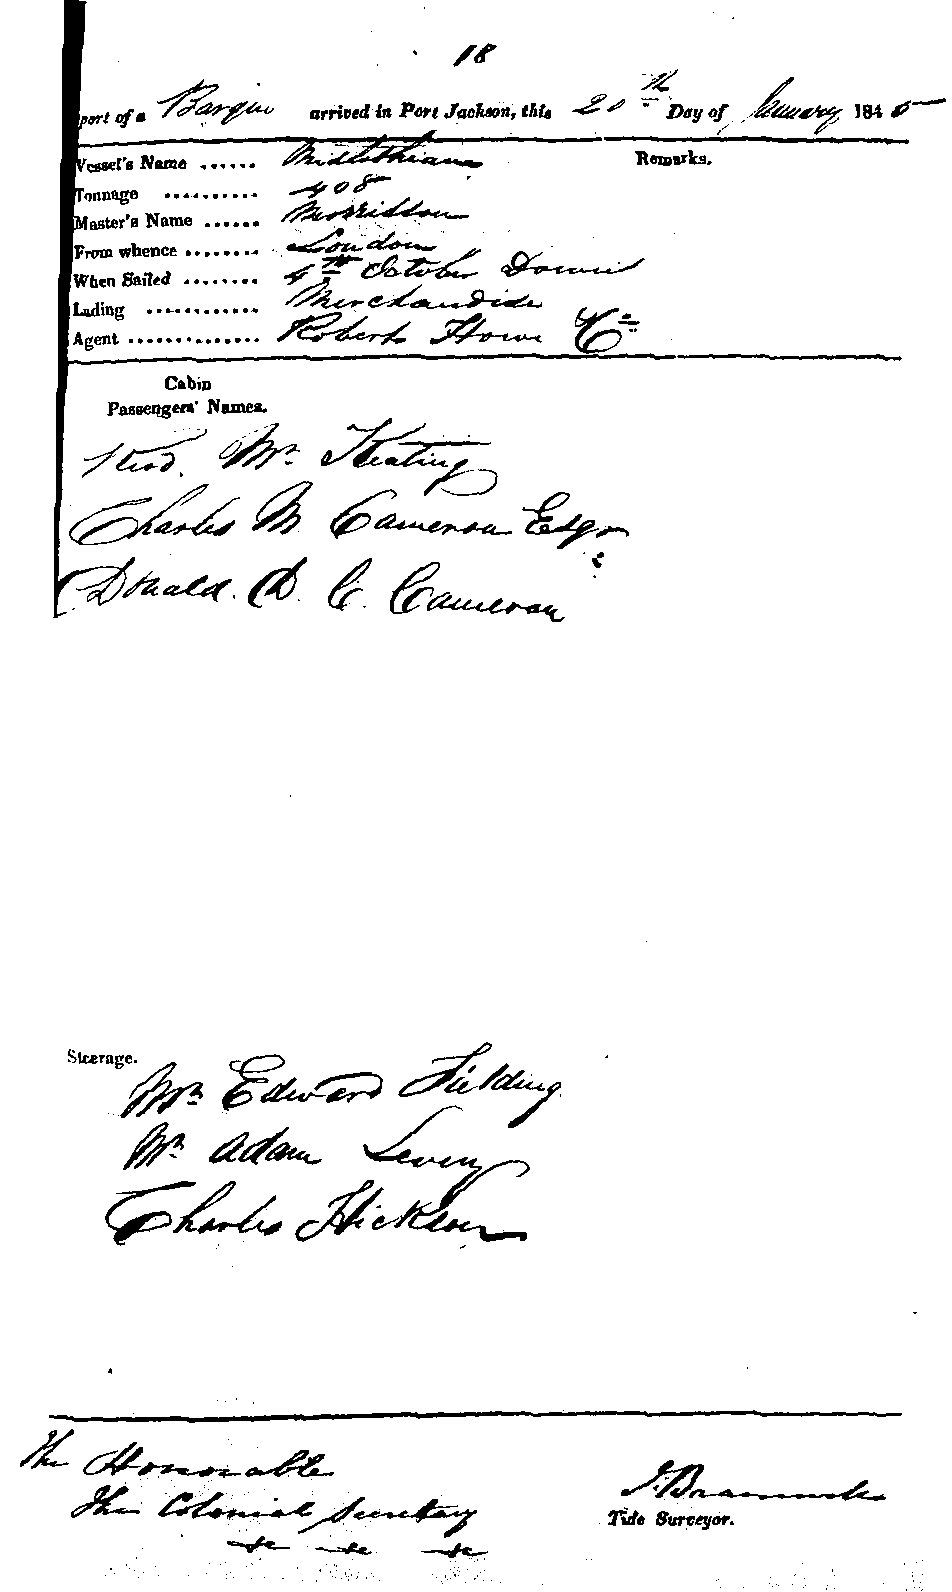 18
port of a Barque arrived in Port Jackson, this 20th Day of January 1845
Vessel's Name ...... Midlothian
Remarks.
Tonnage .......... 408
Master's Name ...... Morrisson
From whence ........ London
When Sailed ........ 4th October Downs
Lading ............ Merchandise
Agent .............. Robert How & Co
Cabin
Passengers' Names.
Revd. Mr Keating
Charles M Cameron Esqr
Donald. D. C. Cameron
Steerage.
Mr Edward Fielding
Mr Adam Levey
Charles Hickson
The Honorable
The Colonial Secretary
&c &c &c
Tide Surveyor.